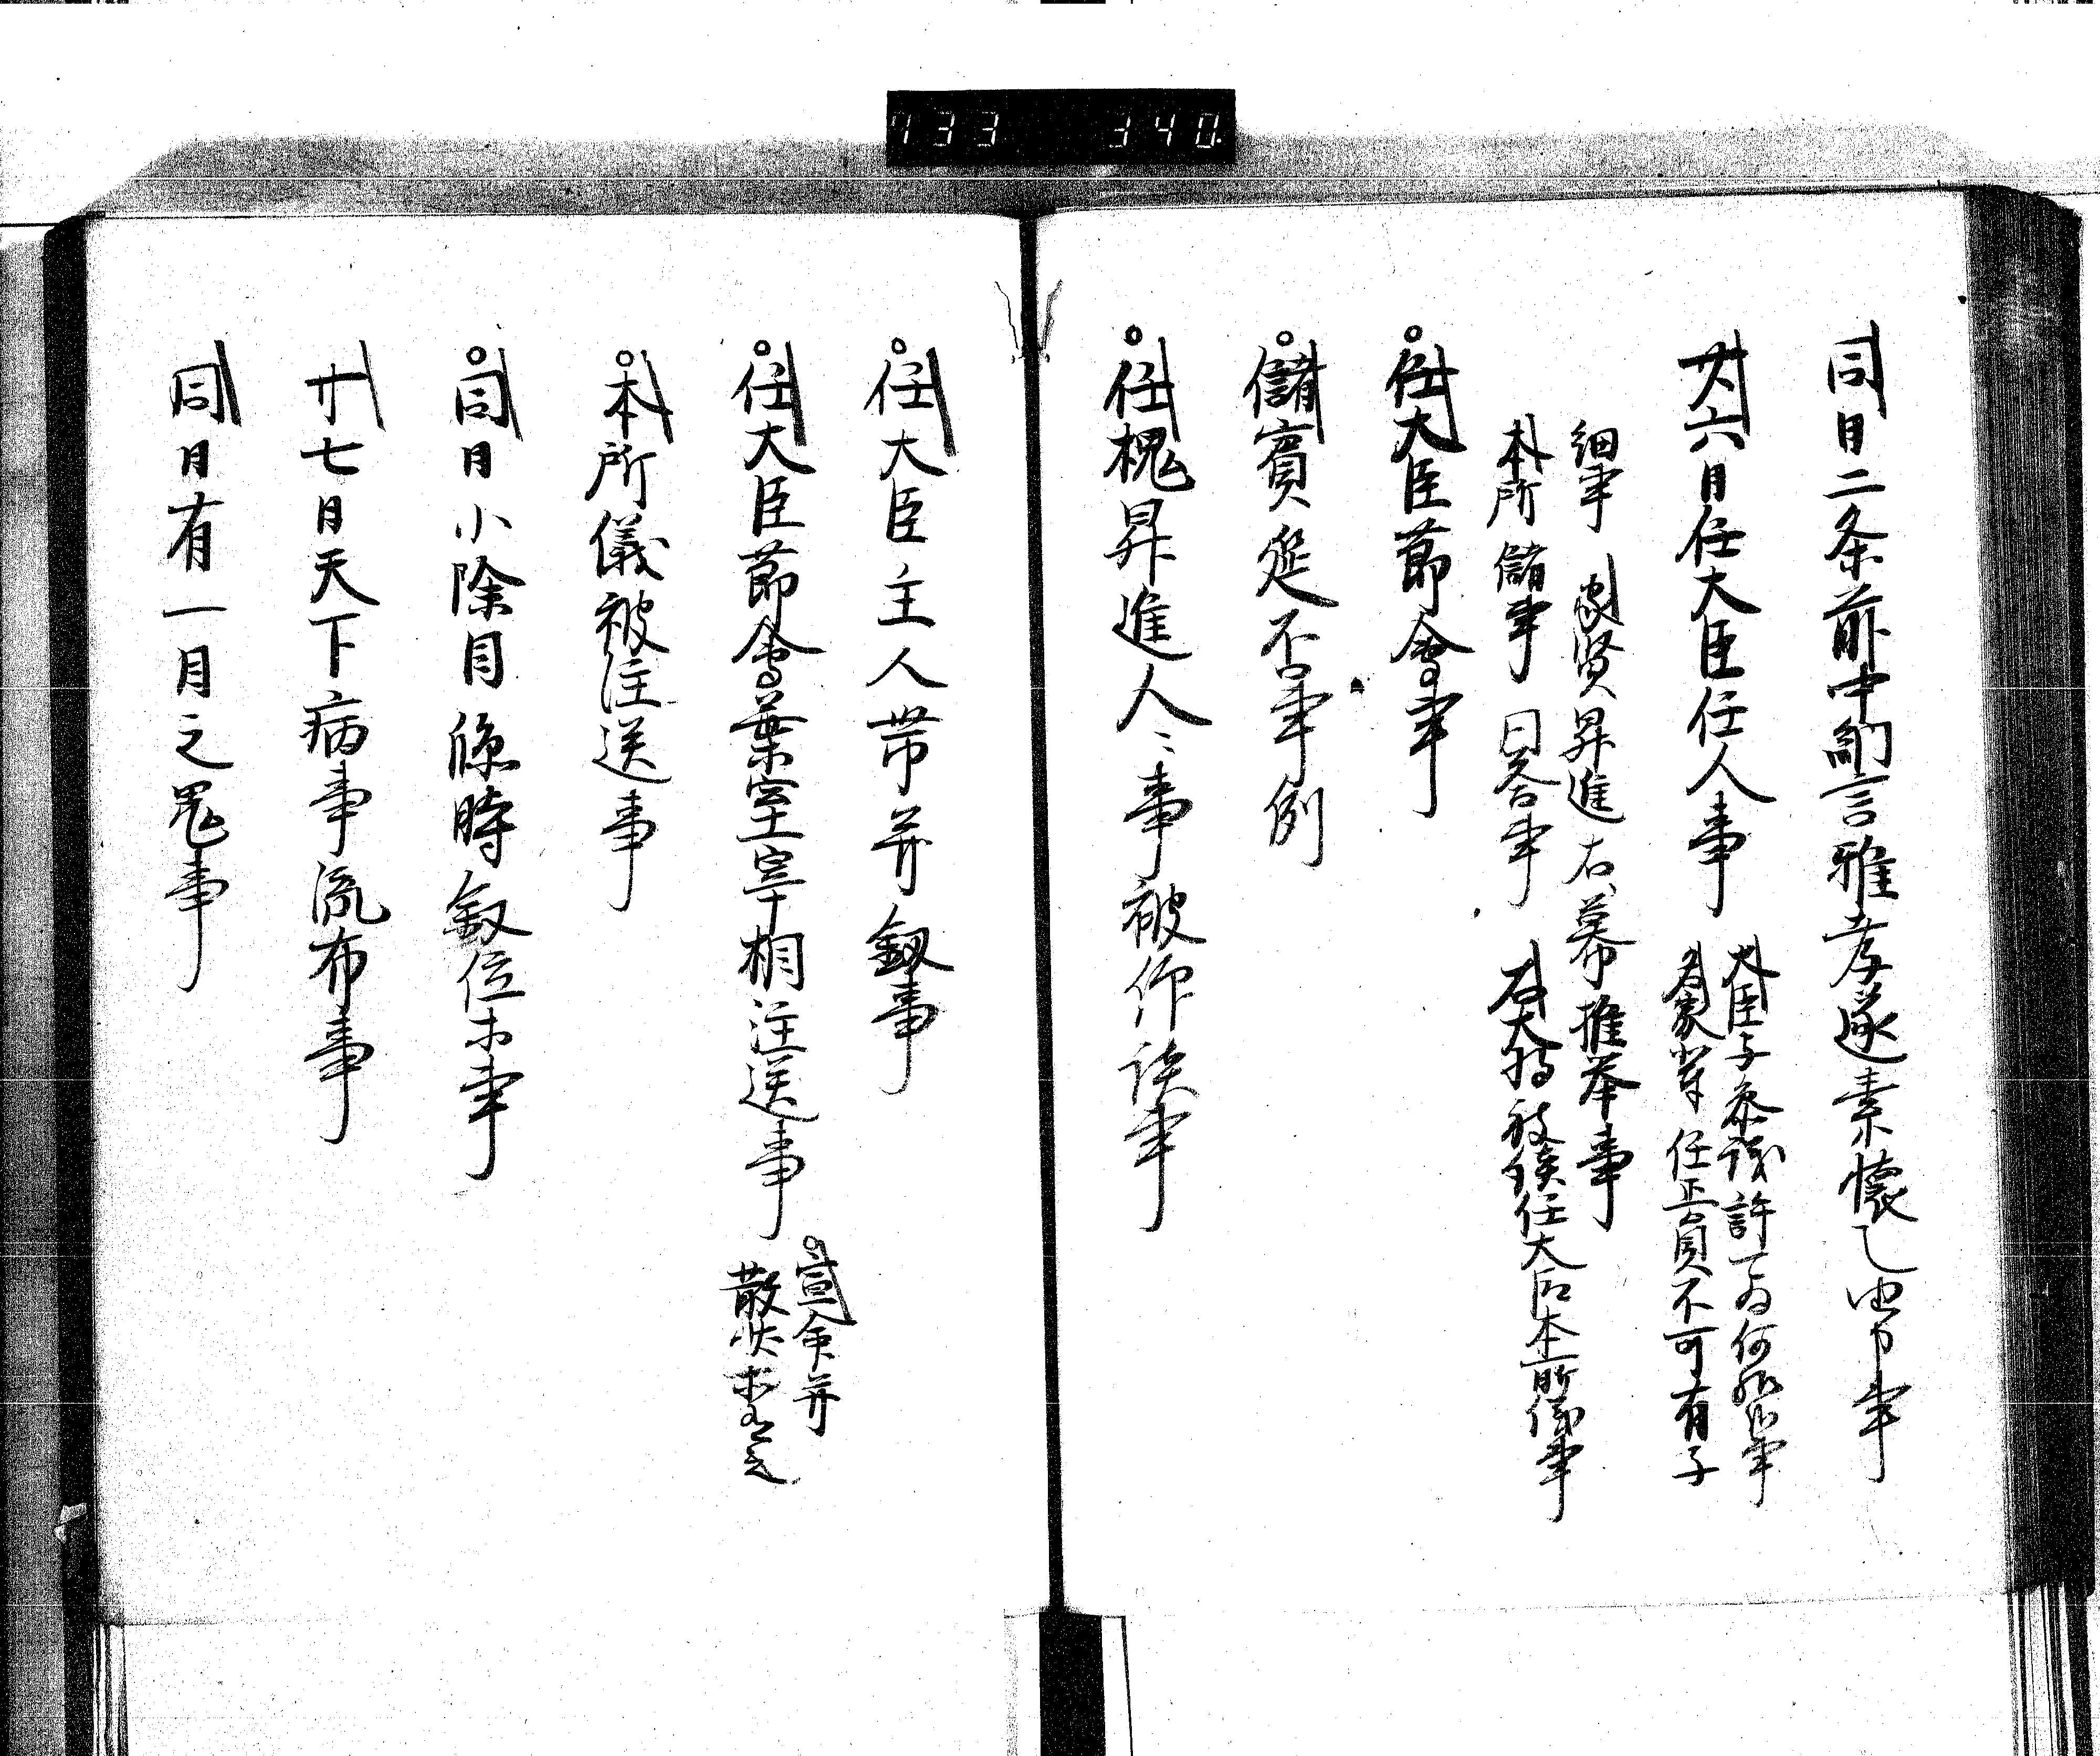 733 340
同日二条前中納言雅孝遂素懐了由事
廿六日任大臣任人事
大臣子参議許可為何様哉事
名家輩任正員不可有子
細事 家賢昇進右幕推挙事
本所儲事 問答事 右大将被談任大臣本所儀事
任大臣節會事
儲賓筵否事例
任槐昇進人々事被仰談事
任大臣主人帯并釼事
任大臣節會葉室宰相注送事
宣命并
散状
本所儀被注送事
同日小除目 臨時叙位等事
廿七日天下病事流布事
同日有一日之鬼事